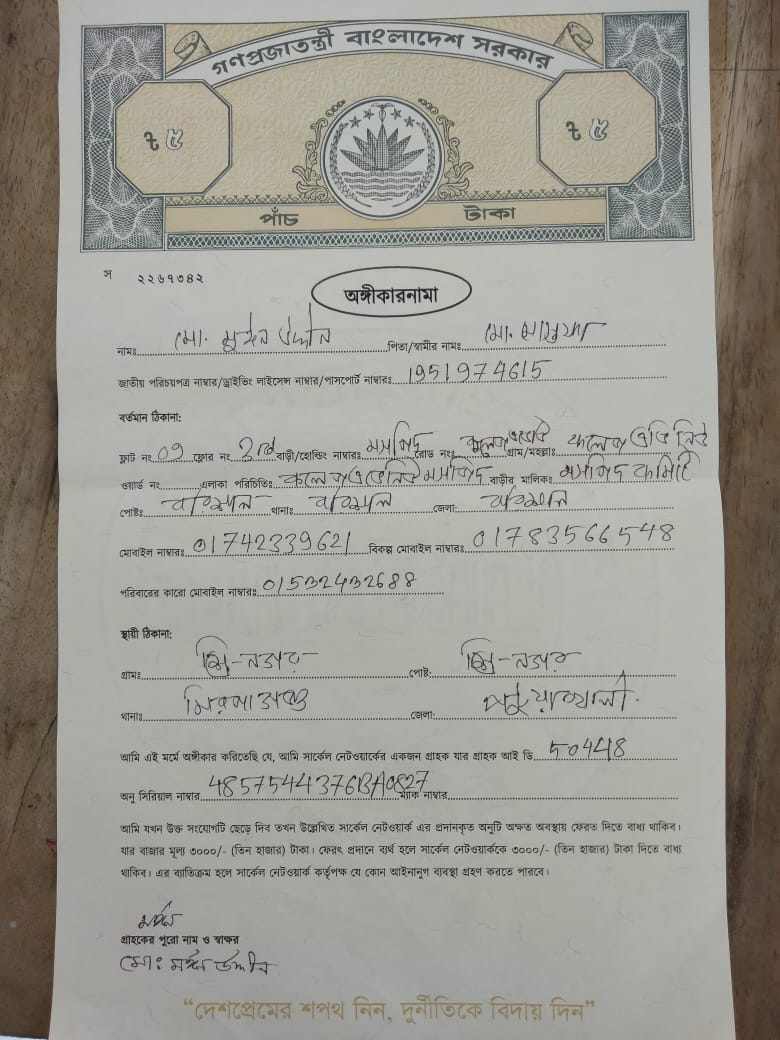 গণপ্রজাতন্ত্রী বাংলাদেশ সরকার
৳ ৫ ৳ ৫
পাঁচ টাকা
স ২২৬৭৩৪২
অঙ্গীকারনামা
নামঃ মো. মুঈন উদ্দীন পিতা/স্বামীর নামঃ মো.
জাতীয় পরিচয়পত্র নাম্বার/ড্রাইভিং লাইসেন্স নাম্বার/পাসপোর্ট নাম্বারঃ 1951974615
বর্তমান ঠিকানা:
ফ্লাট নং ফ্লোর নং 3rd বাড়ী/হোল্ডিং নাম্বারঃ মসজিদ রোড নং গ্রাম/মহল্লাঃ কলেজ এভিনিউ
ওয়ার্ড নং এলাকা পরিচিতিঃ কলেজ এভেনিউ মসজিদ বাড়ীর মালিকঃ মসজিদ কমিটি
পোষ্টঃ বরিশাল থানাঃ বরিশাল জেলা: বরিশাল
মোবাইল নাম্বারঃ 01742339621 বিকল্প মোবাইল নাম্বারঃ 01783566548
পরিবারের কারো মোবাইল নাম্বারঃ 01532432688
স্থায়ী ঠিকানা:
গ্রামঃ পোষ্ট:
থানাঃ মিরজাগঞ্জ জেলা: পটুয়াখালী
আমি এই মর্মে অঙ্গীকার করিতেছি যে, আমি সার্কেল নেটওয়ার্কের একজন গ্রাহক যার গ্রাহক আই ডি 50448
অনু সিরিয়াল নাম্বার 485754437613A0827 ম্যাক নাম্বার
আমি যখন উক্ত সংযোগটি ছেড়ে দিব তখন উল্লেখিত সার্কেল নেটওয়ার্ক এর প্রদানকৃত অনুটি অক্ষত অবস্থায় ফেরত দিতে বাধ্য থাকিব।
যার বাজার মূল্য ৩০০০/- (তিন হাজার) টাকা। ফেরৎ প্রদানে ব্যর্থ হলে সার্কেল নেটওয়ার্ককে ৩০০০/- (তিন হাজার) টাকা দিতে বাধ্য
থাকিব। এর ব্যতিক্রম হলে সার্কেল নেটওয়ার্ক কর্তৃপক্ষ যে কোন আইনানুগ ব্যবস্থা গ্রহণ করতে পারবে।
মঈন
গ্রাহকের পুরো নাম ও স্বাক্ষর
মো: মঈন উদ্দীন
“দেশপ্রেমের শপথ নিন, দুর্নীতিকে বিদায় দিন”